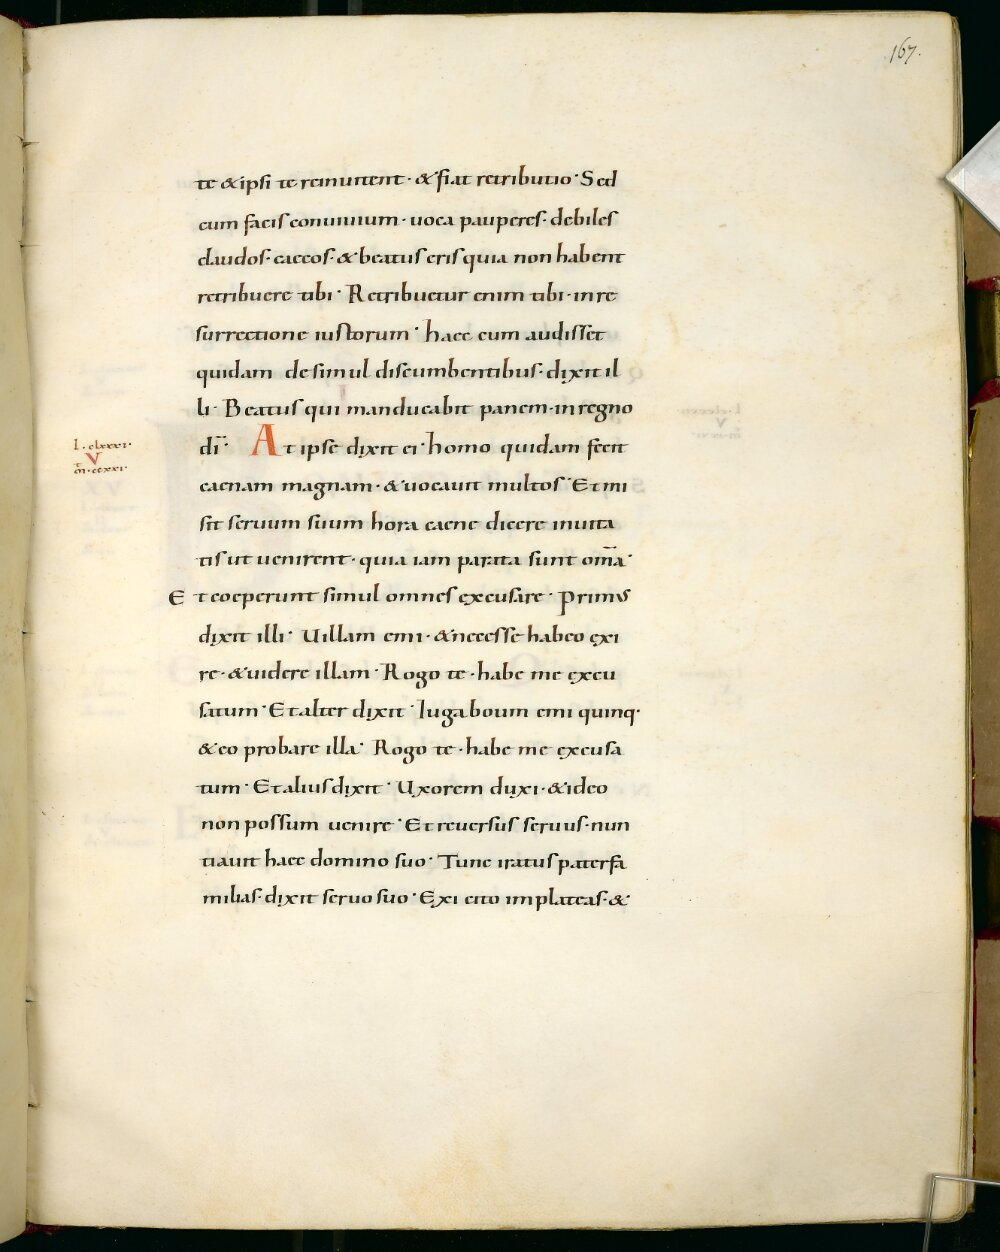 167.
te & ipsi te reinuitent · & fiat retributio · Sed
cum facis conuiuium · uoca pauperes · debiles
claudos · caecos · & beatus eris quia non habent
retribuere tibi · Retribuetur enim tibi · in re
surrectione iustorum · haec cum audisset
quidam de simul discumbentibus · dixit il
li · Beatus qui manducabit panem · in regno
dī · At ipse dixit ei · homo quidam fecit
caenam magnam · & uocauit multos · Et mi
sit seruum suum hora caene dicere inuita
tis ut uenirent · quia iam parata sunt om̄a ·
Et coeperunt simul omnes excusare · Primus
dixit illi · Uillam emi · & necesse habeo exi
re · & uidere illam · Rogo te · habe me excu
satum · Et alter dixit · Iuga boum emi quinq·
& eo probare illa · Rogo te · habe me excusa
tum · Et alius dixit · Uxorem duxi · & ideo
non possum uenire · Et reuersus seruus · nun
tiauit haec domino suo · Tunc iratus paterfa
milias · dixit seruo suo · Exi cito in plateas · &
l · clxxxi ·
V
m · ccxxi ·